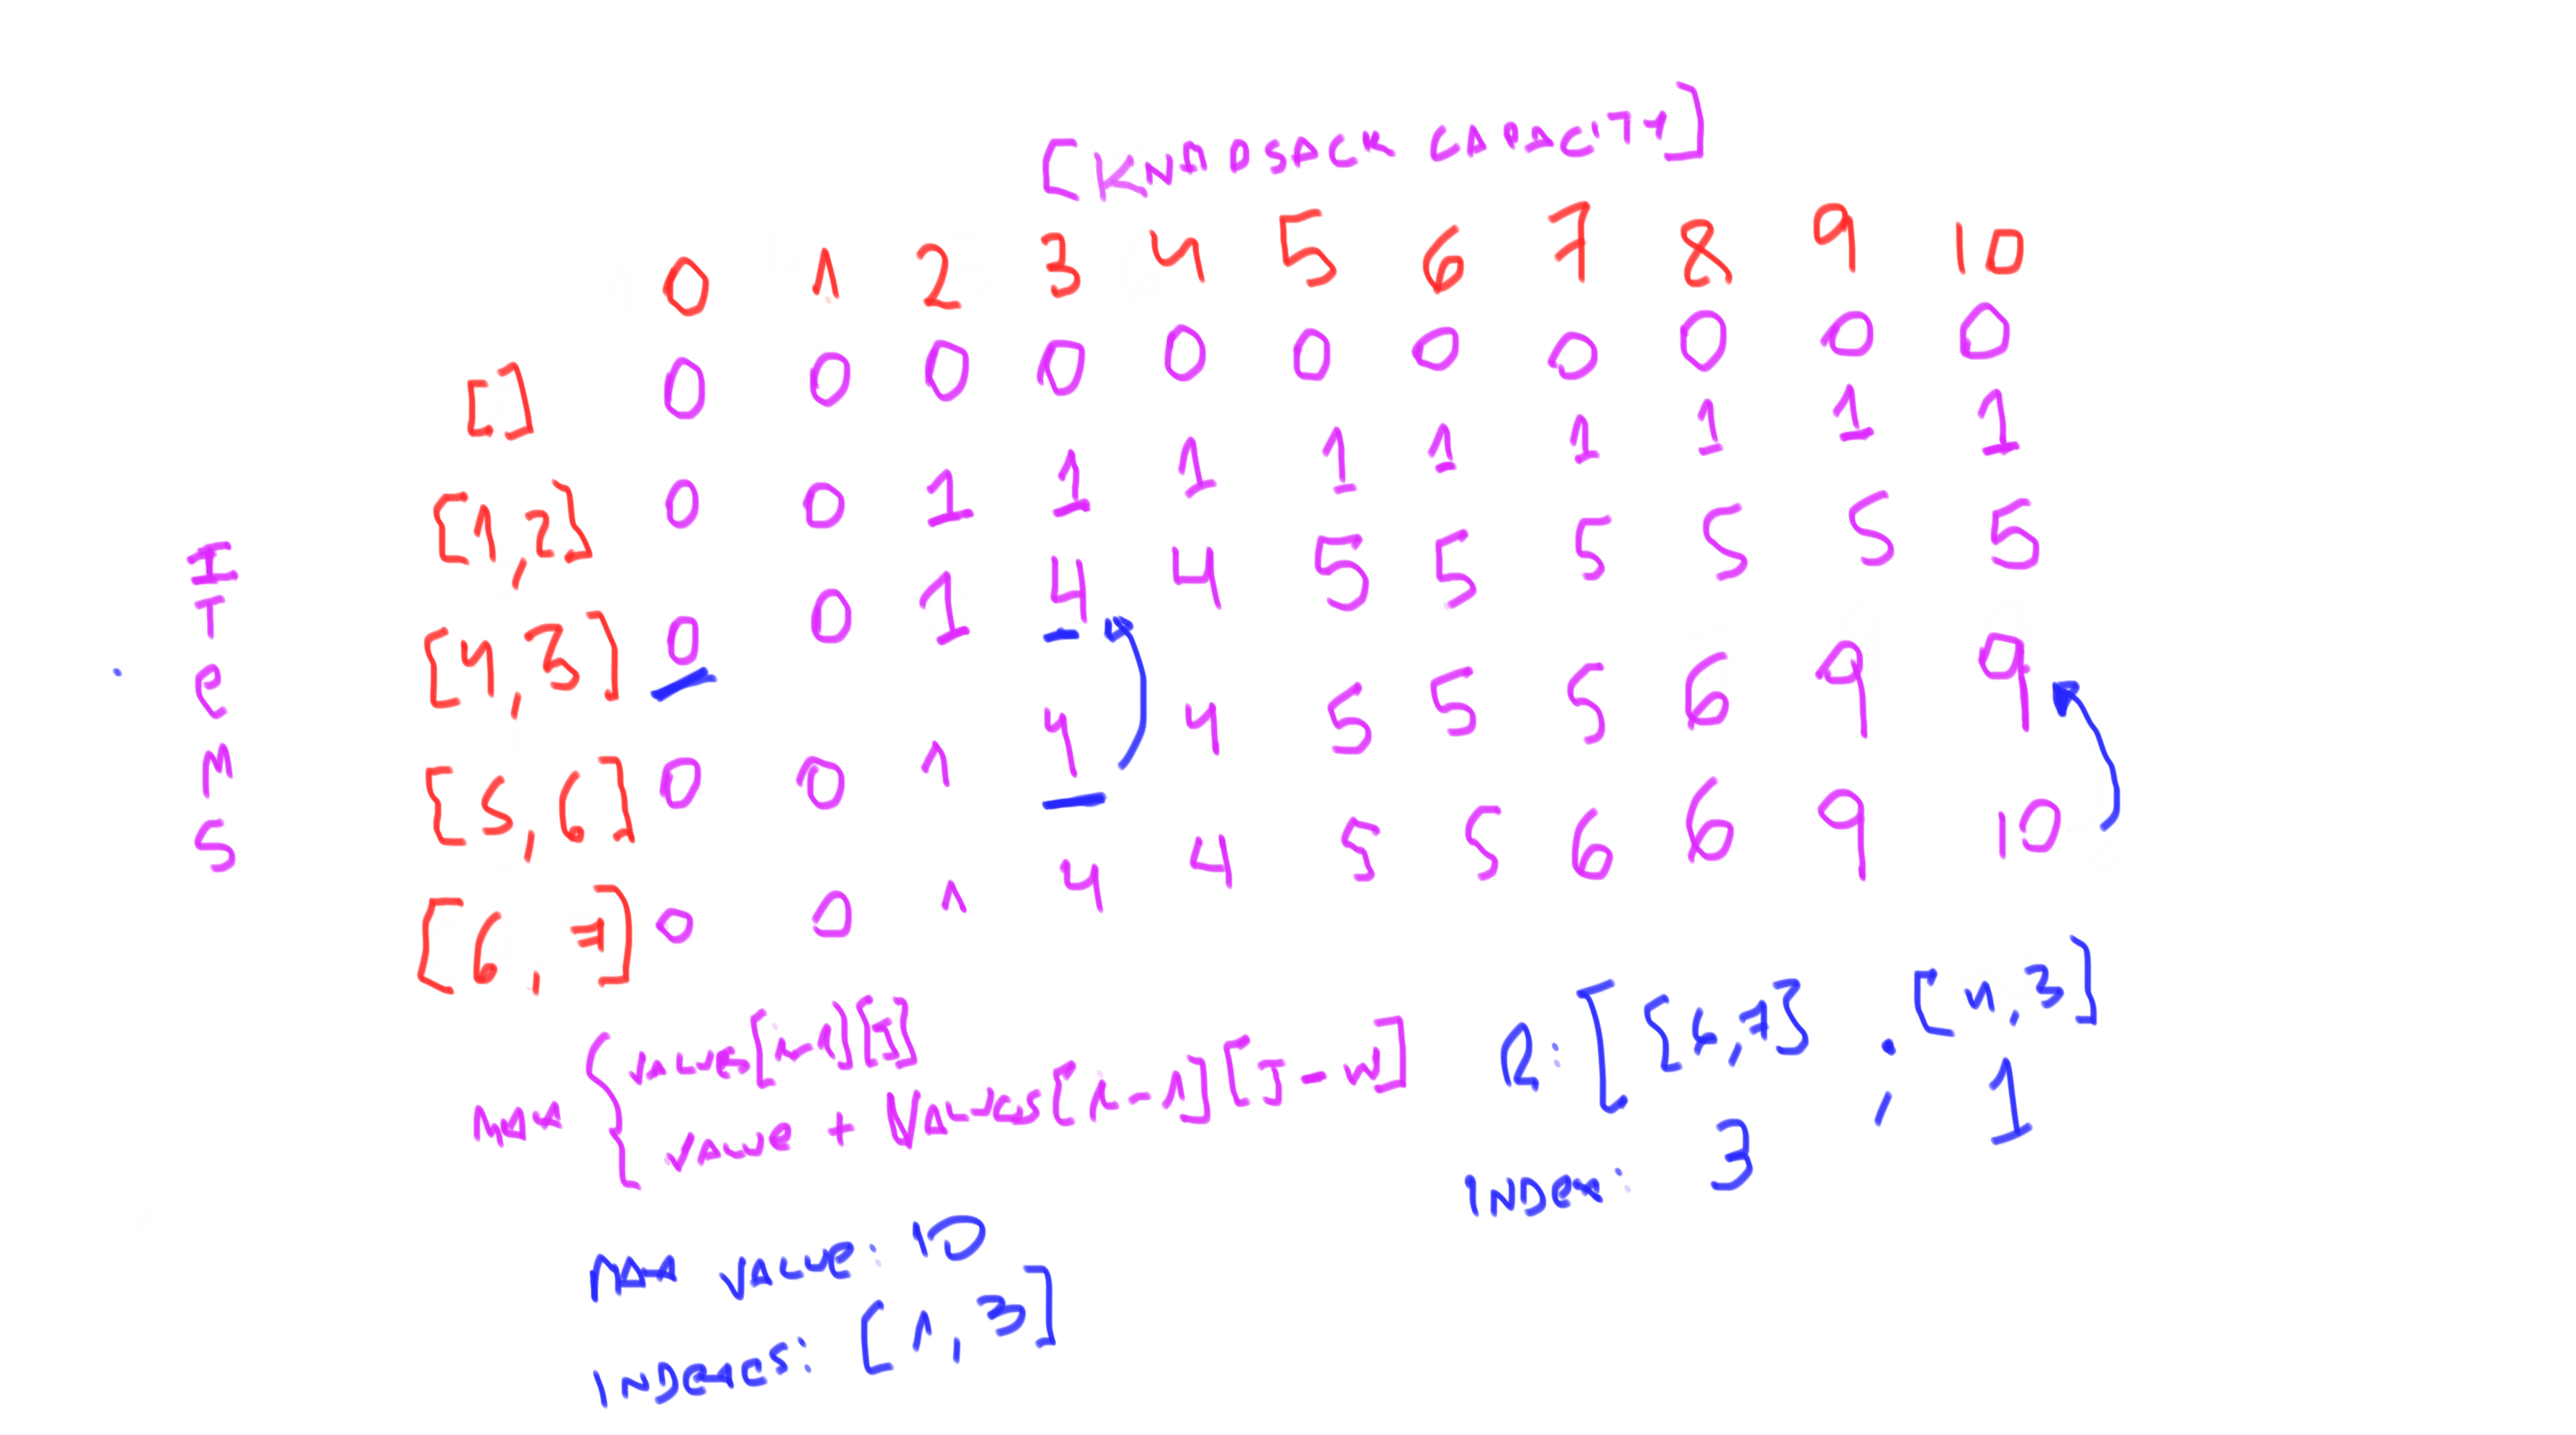 [KNAPSACK CAPACITY]
0 1 2 3 4 5 6 7 8 9 10
[] 0 0 0 0 0 0 0 0 0 0 0
[1,2] 0 0 1 1 1 1 1 1 1 1 1
[4,3] 0 0 1 4 4 5 5 5 5 5 5
[5,6] 0 0 1 4 4 5 5 5 6 9 9
[6,7] 0 0 1 4 4 5 5 6 6 9 10
ITeMS
MAX { VALUES[i-1][J]
VALUE + VALUES[i-1][J-W]
R: [[6,7], [4,3]
INDEX: 3 , 1
MAX VALUE: 10
INDEXES: [1,3]